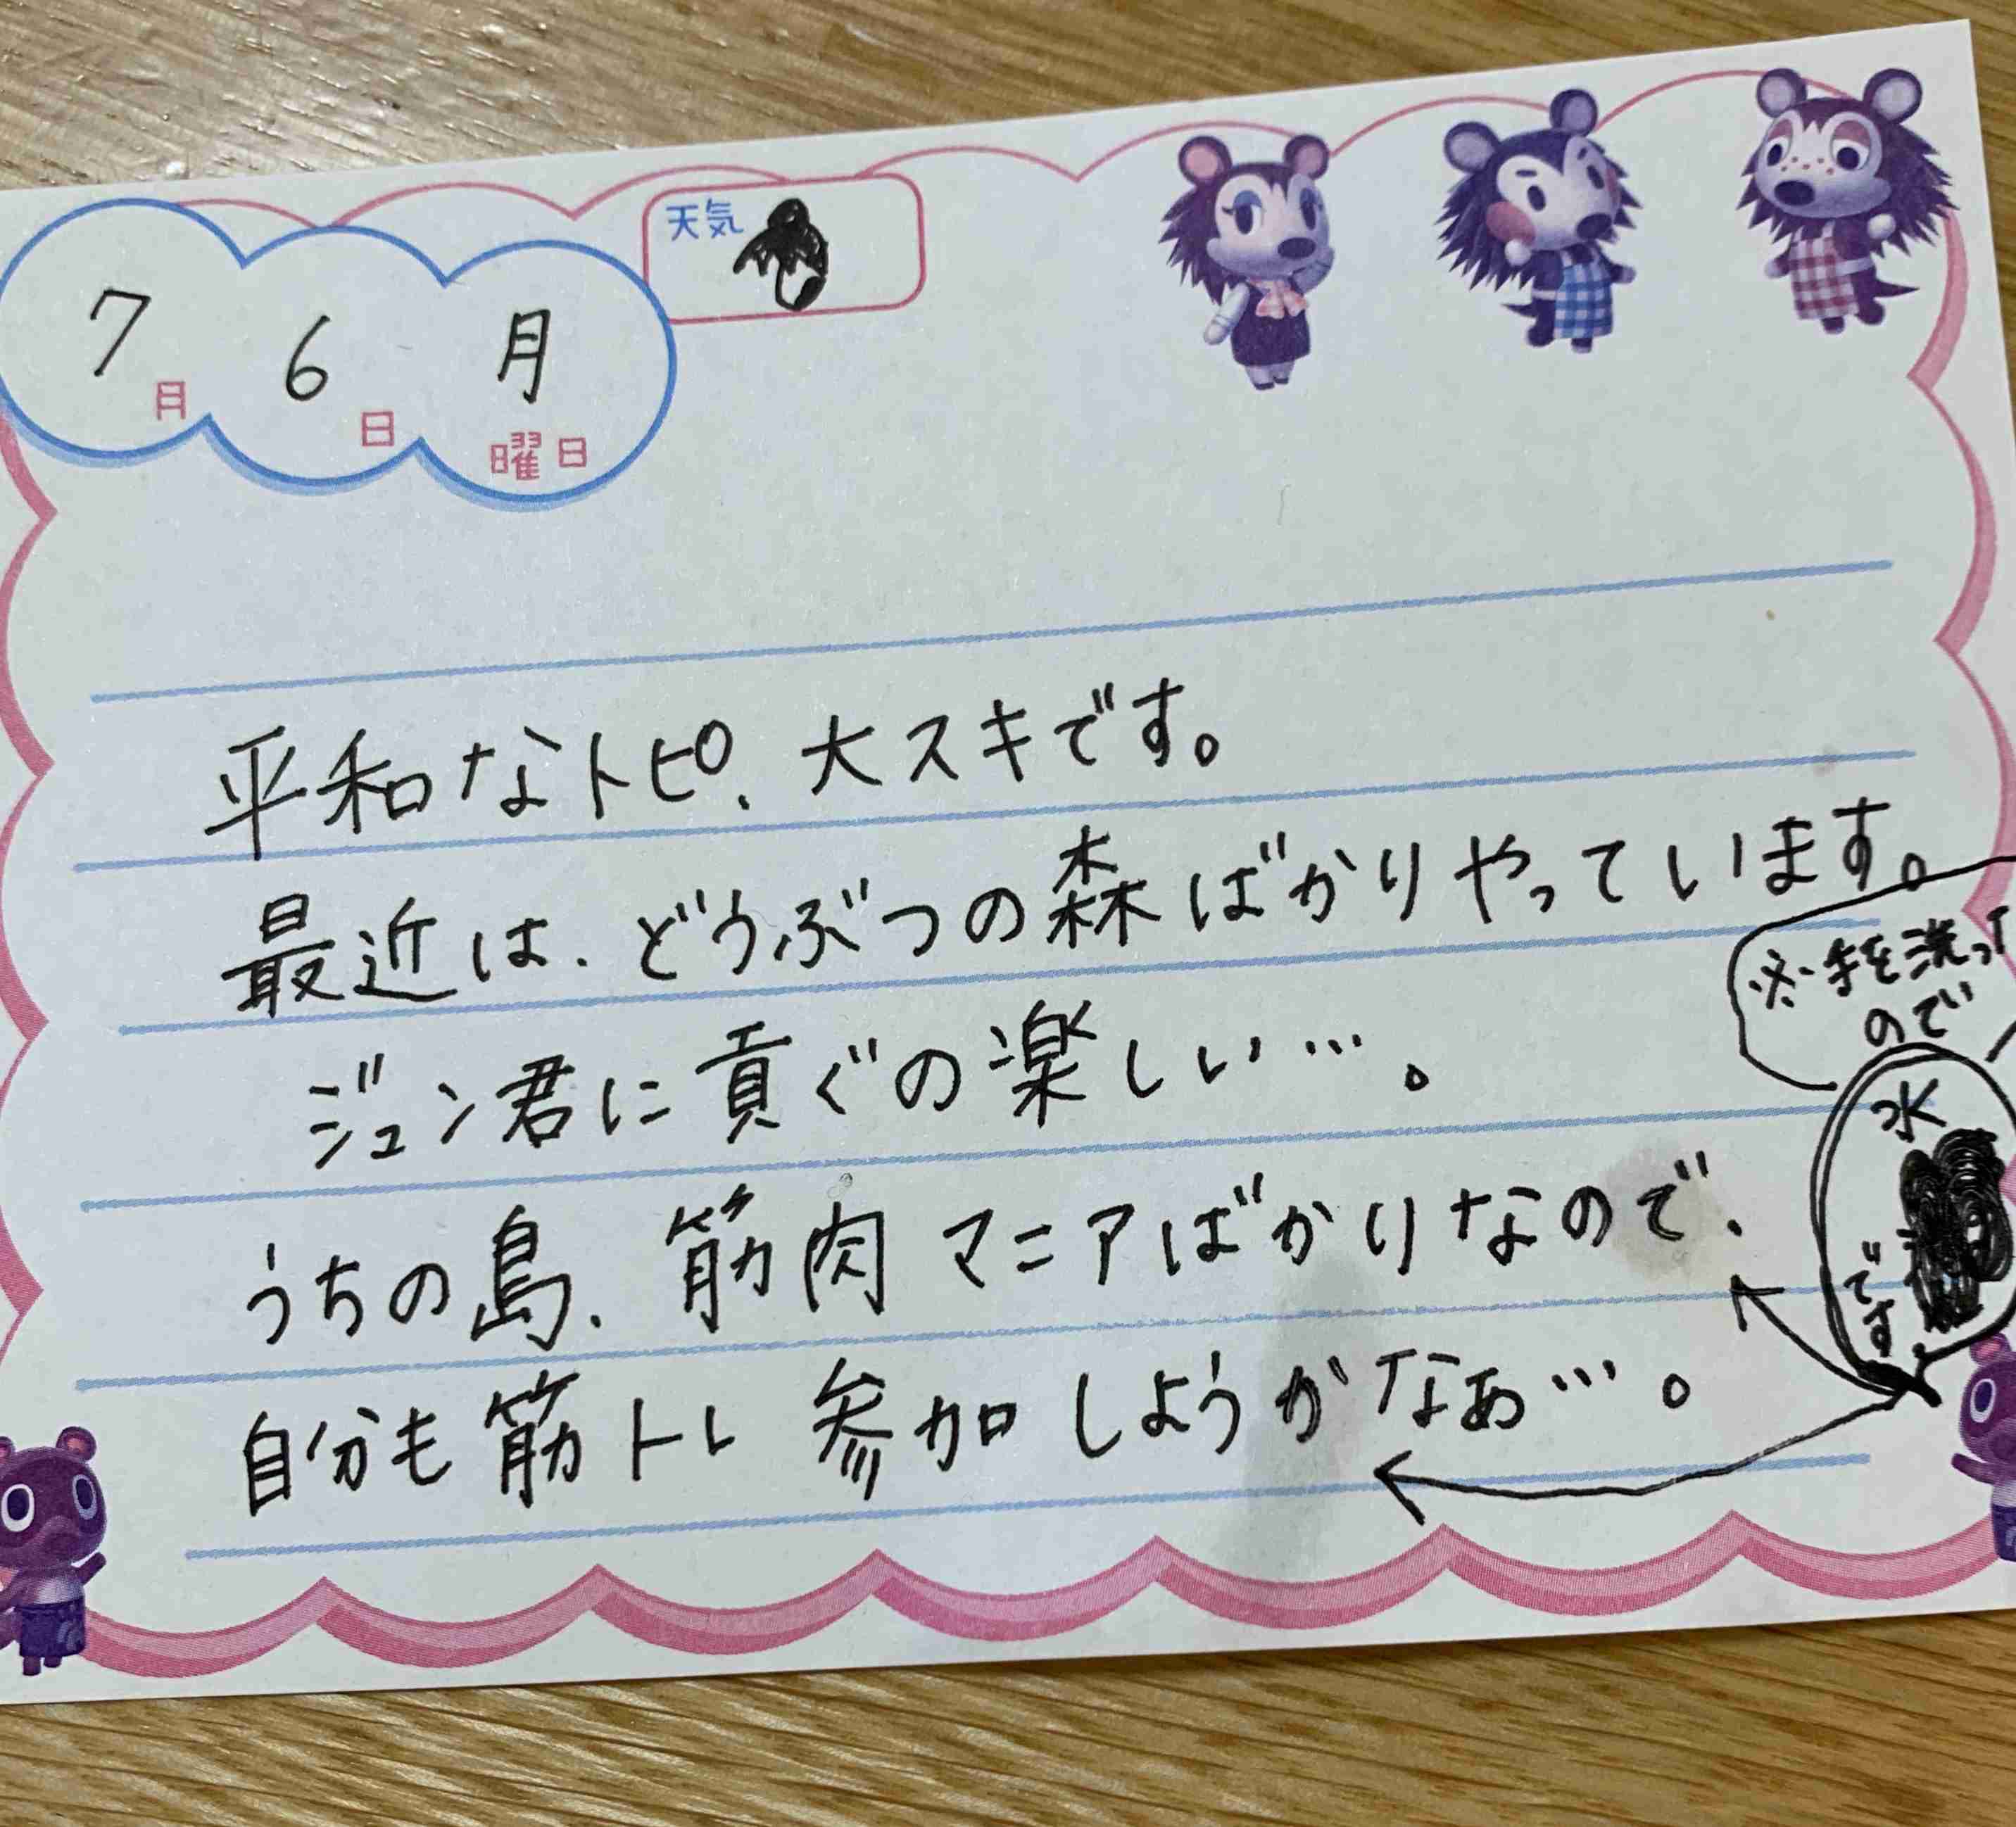 7月 6日 月曜日
天気
平和なトピ、大スキです。
最近は、どうぶつの森ばかりやっています。
ジュン君に貢ぐの楽しい…。
うちの島、筋肉マニアばかりなので、
自分も筋トレ参加しようかなあ…。
※手を洗った
ので
水
です